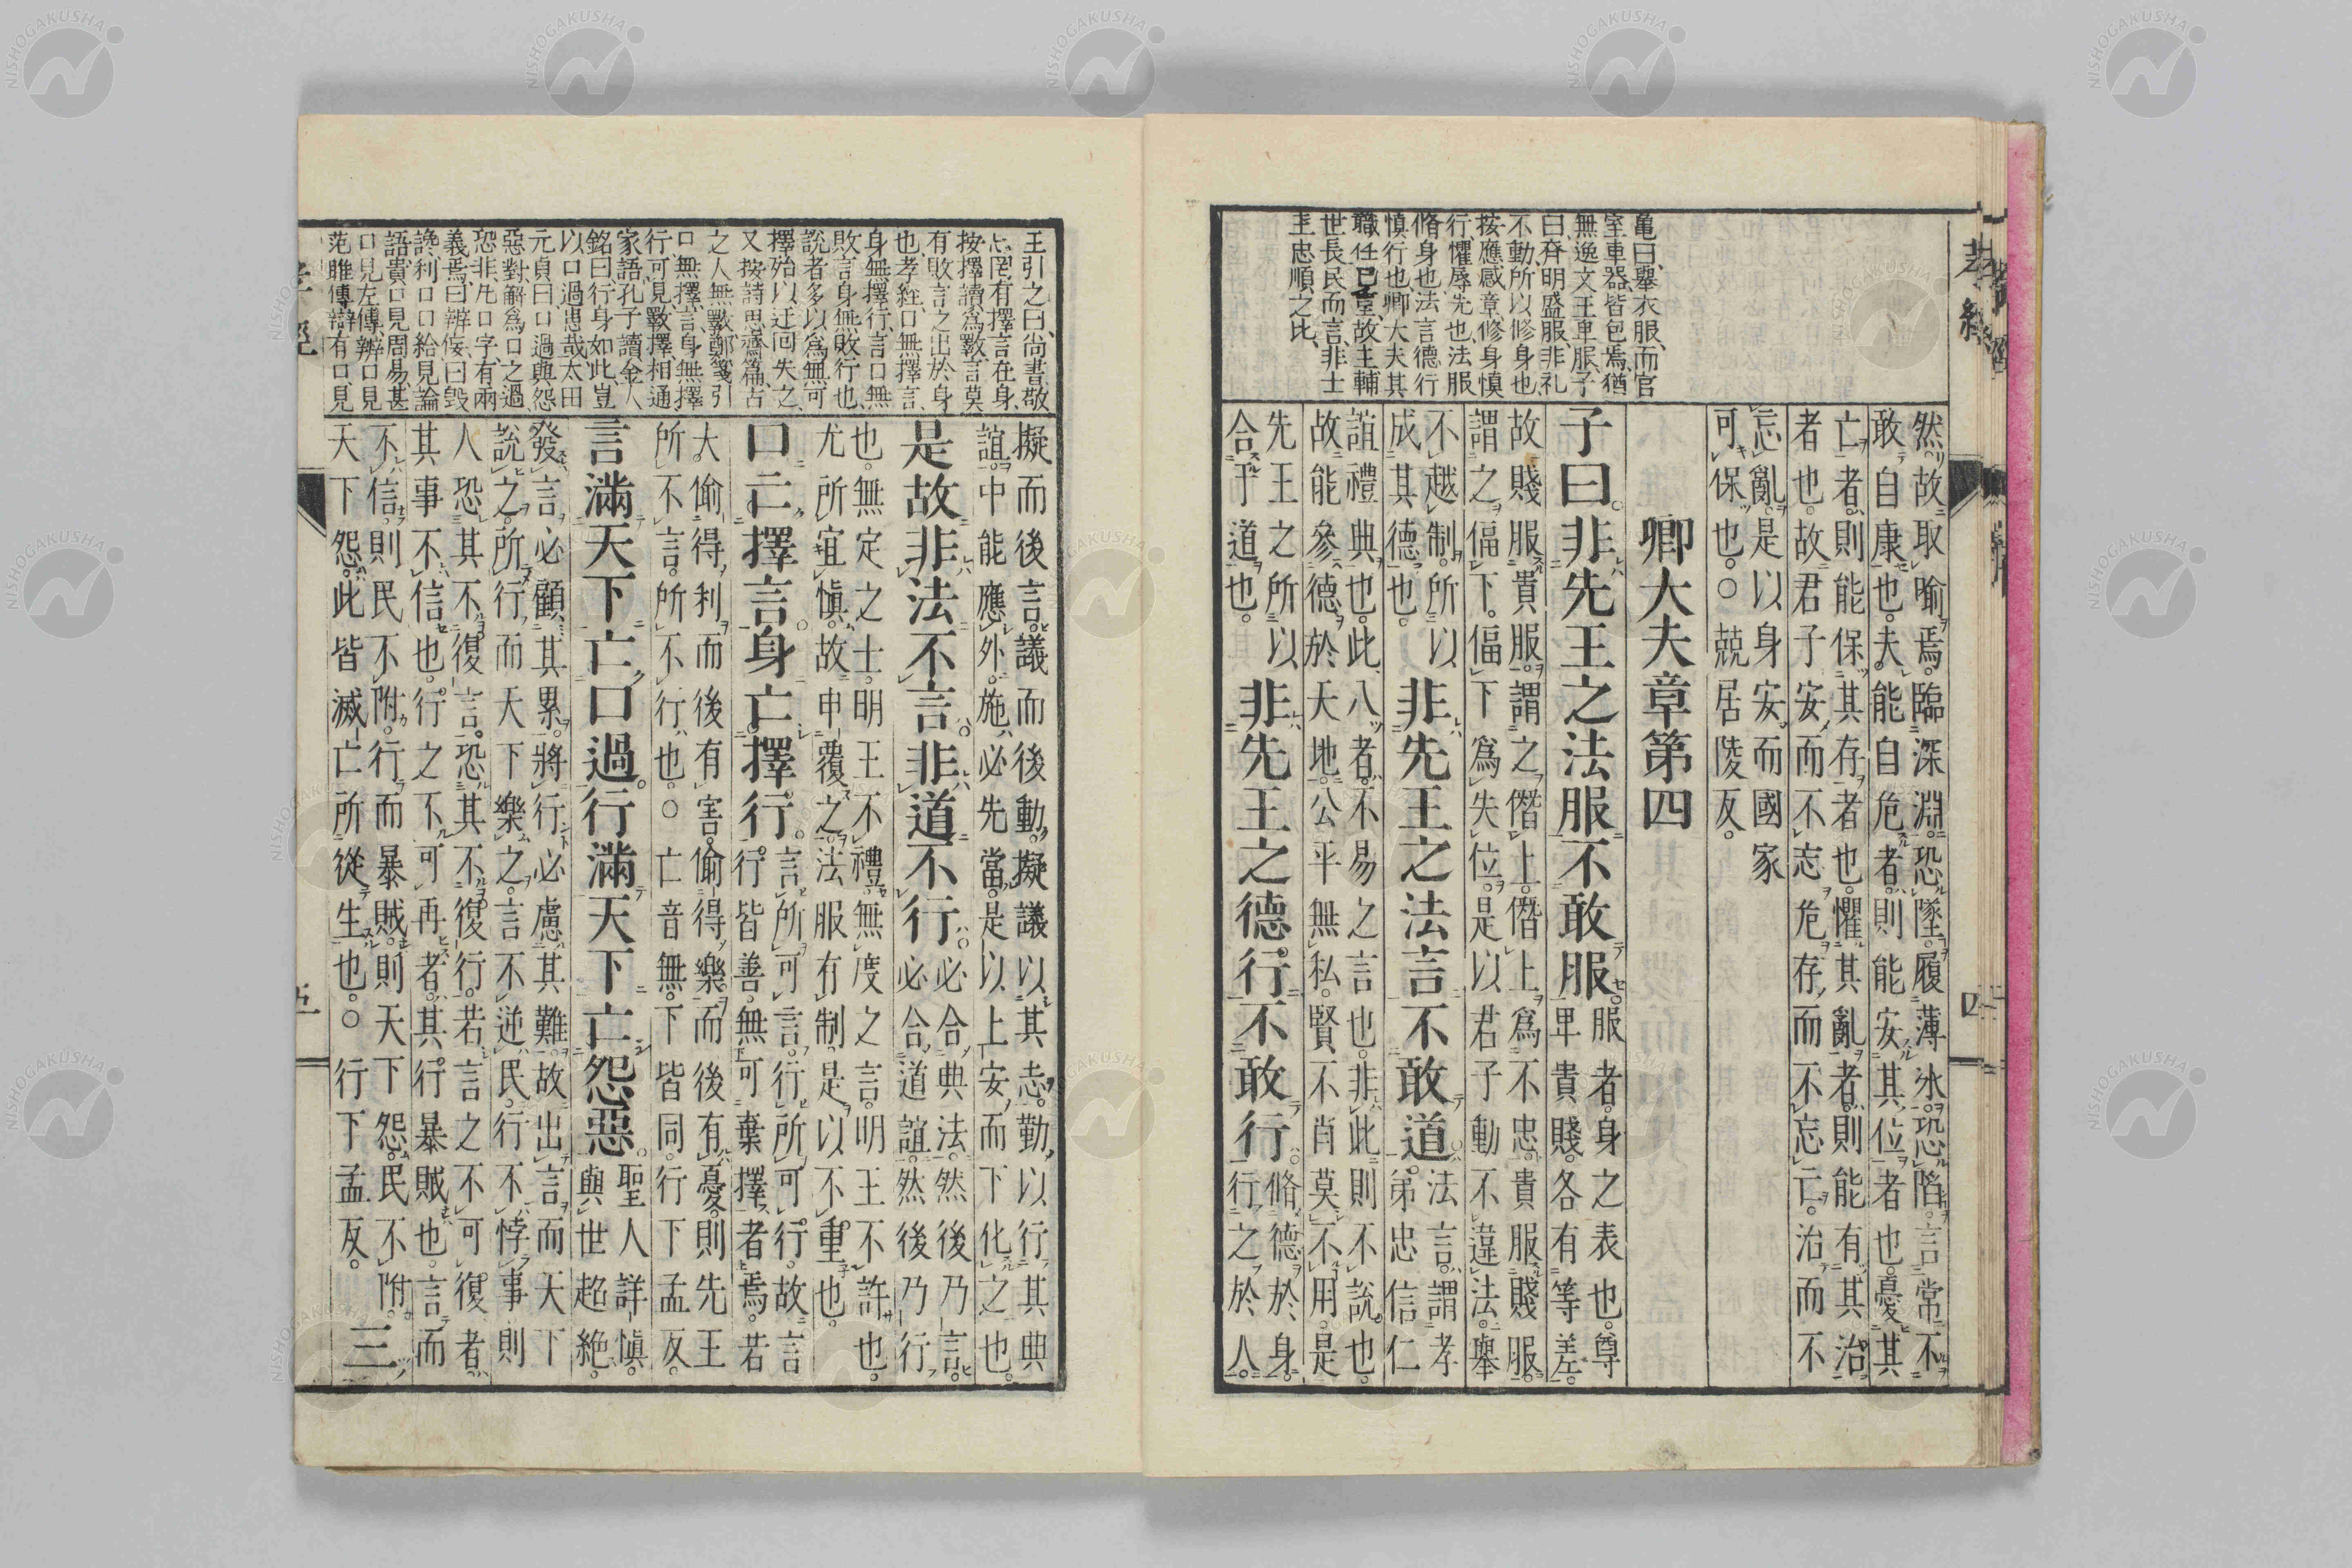 亀曰、舉衣服、而官
室車器、皆包焉、猶
無逸文王卑服、子
曰、齊明盛服、非礼
不動、所以修身也、
按應感章、修身慎
行、懼辱先也、法服
脩身也、法言德行
慎行也、卿大夫其
職任已重、故主輔
世長民而言、非士
主忠順之比、
孝經
四
然故取喻焉。臨深淵。恐墜。履薄氷。恐陷。言常不
敢自康也。夫能自危者。則能安其位者也。憂其
亡者。則能保其存者也。懼其亂者。則能有其治
者也。故君子安而不忘危。存而不忘亡。治而不
忘亂。是以身安。而國家
可保也。○兢居陵反。
卿大夫章第四
子曰。非先王之法服不敢服。
服者。身之表也。尊
卑貴賤。各有等差。
故賤服貴服。謂之僭上。僭上爲不忠。貴服賤服。
謂之偪下。偪下爲失位。是以君子動不違法。舉
不越制。所以
成其德也。
非先王之法言不敢道。
法言。謂孝
弟忠信仁
誼禮典也。此八者。不易之言也。非此則不說也。
故能參德於天地。公平無私。賢不肖莫不用。是
先王之所以
合于道也。
非先王之德行不敢行。
脩德於身。
行之於人。
王引之曰、尚書敬
忌罔有擇言在身、
按擇讀爲斁、言莫
有敗言之出於身
也、孝經口無擇言、
身無擇行、言口無
敗言、身無敗行也、
說者多以爲無可
擇、殆以迂回失之、
又按詩思齊篇古
之人無斁、鄭箋引
口無擇言、身無擇
行、可見斁擇相通
家語孔子讀金人
銘曰、行身如此、豈
以口過患哉、太田
元貞曰、口過與怨
惡對、解爲口之過
恐非、凡口字有兩
義焉、曰辨佞、曰毀
讒、利口口給見論
語、貴口見周易、甚
口見左傳、辨口見
范雎傳、辯有口見
擬而後言。議而後動。擬議以其志。勤以行其典
誼。中能應外。施必先當。是以上安而下化之也。
是故非法不言。非道不行。
必合典法。然後乃言。
必合道誼。然後乃行
也。無定之士。明王不禮。無度之言。明王不許也。
尤所宜慎。故申覆之。法服有制。是以不重也。
口亡擇言。身亡擇行。
言所可言。行所可行。故言
行皆善。無可棄擇者焉。若
大偷得利而後有害。偷得樂而後有憂。則先王
所不言。所不行也。○亡音無。下皆同。行下孟反。
言滿天下亡口過。行滿天下亡怨惡。
聖人詳慎。
與世超絶。
發言必顧其累。將行必慮其難。故出言而天下
說之。所行而天下樂之。言不逆民。行不悖事。則
人恐其不復言。恐其不復行。若言之不可復者。
其事不信也。行之不可再者。其行暴賊也。言而
不信。則民不附。行而暴賊。則天下怨。民不附。
天下怨。此皆滅亡所從生也。○行下孟反。
三
NISHOGAKUSHA